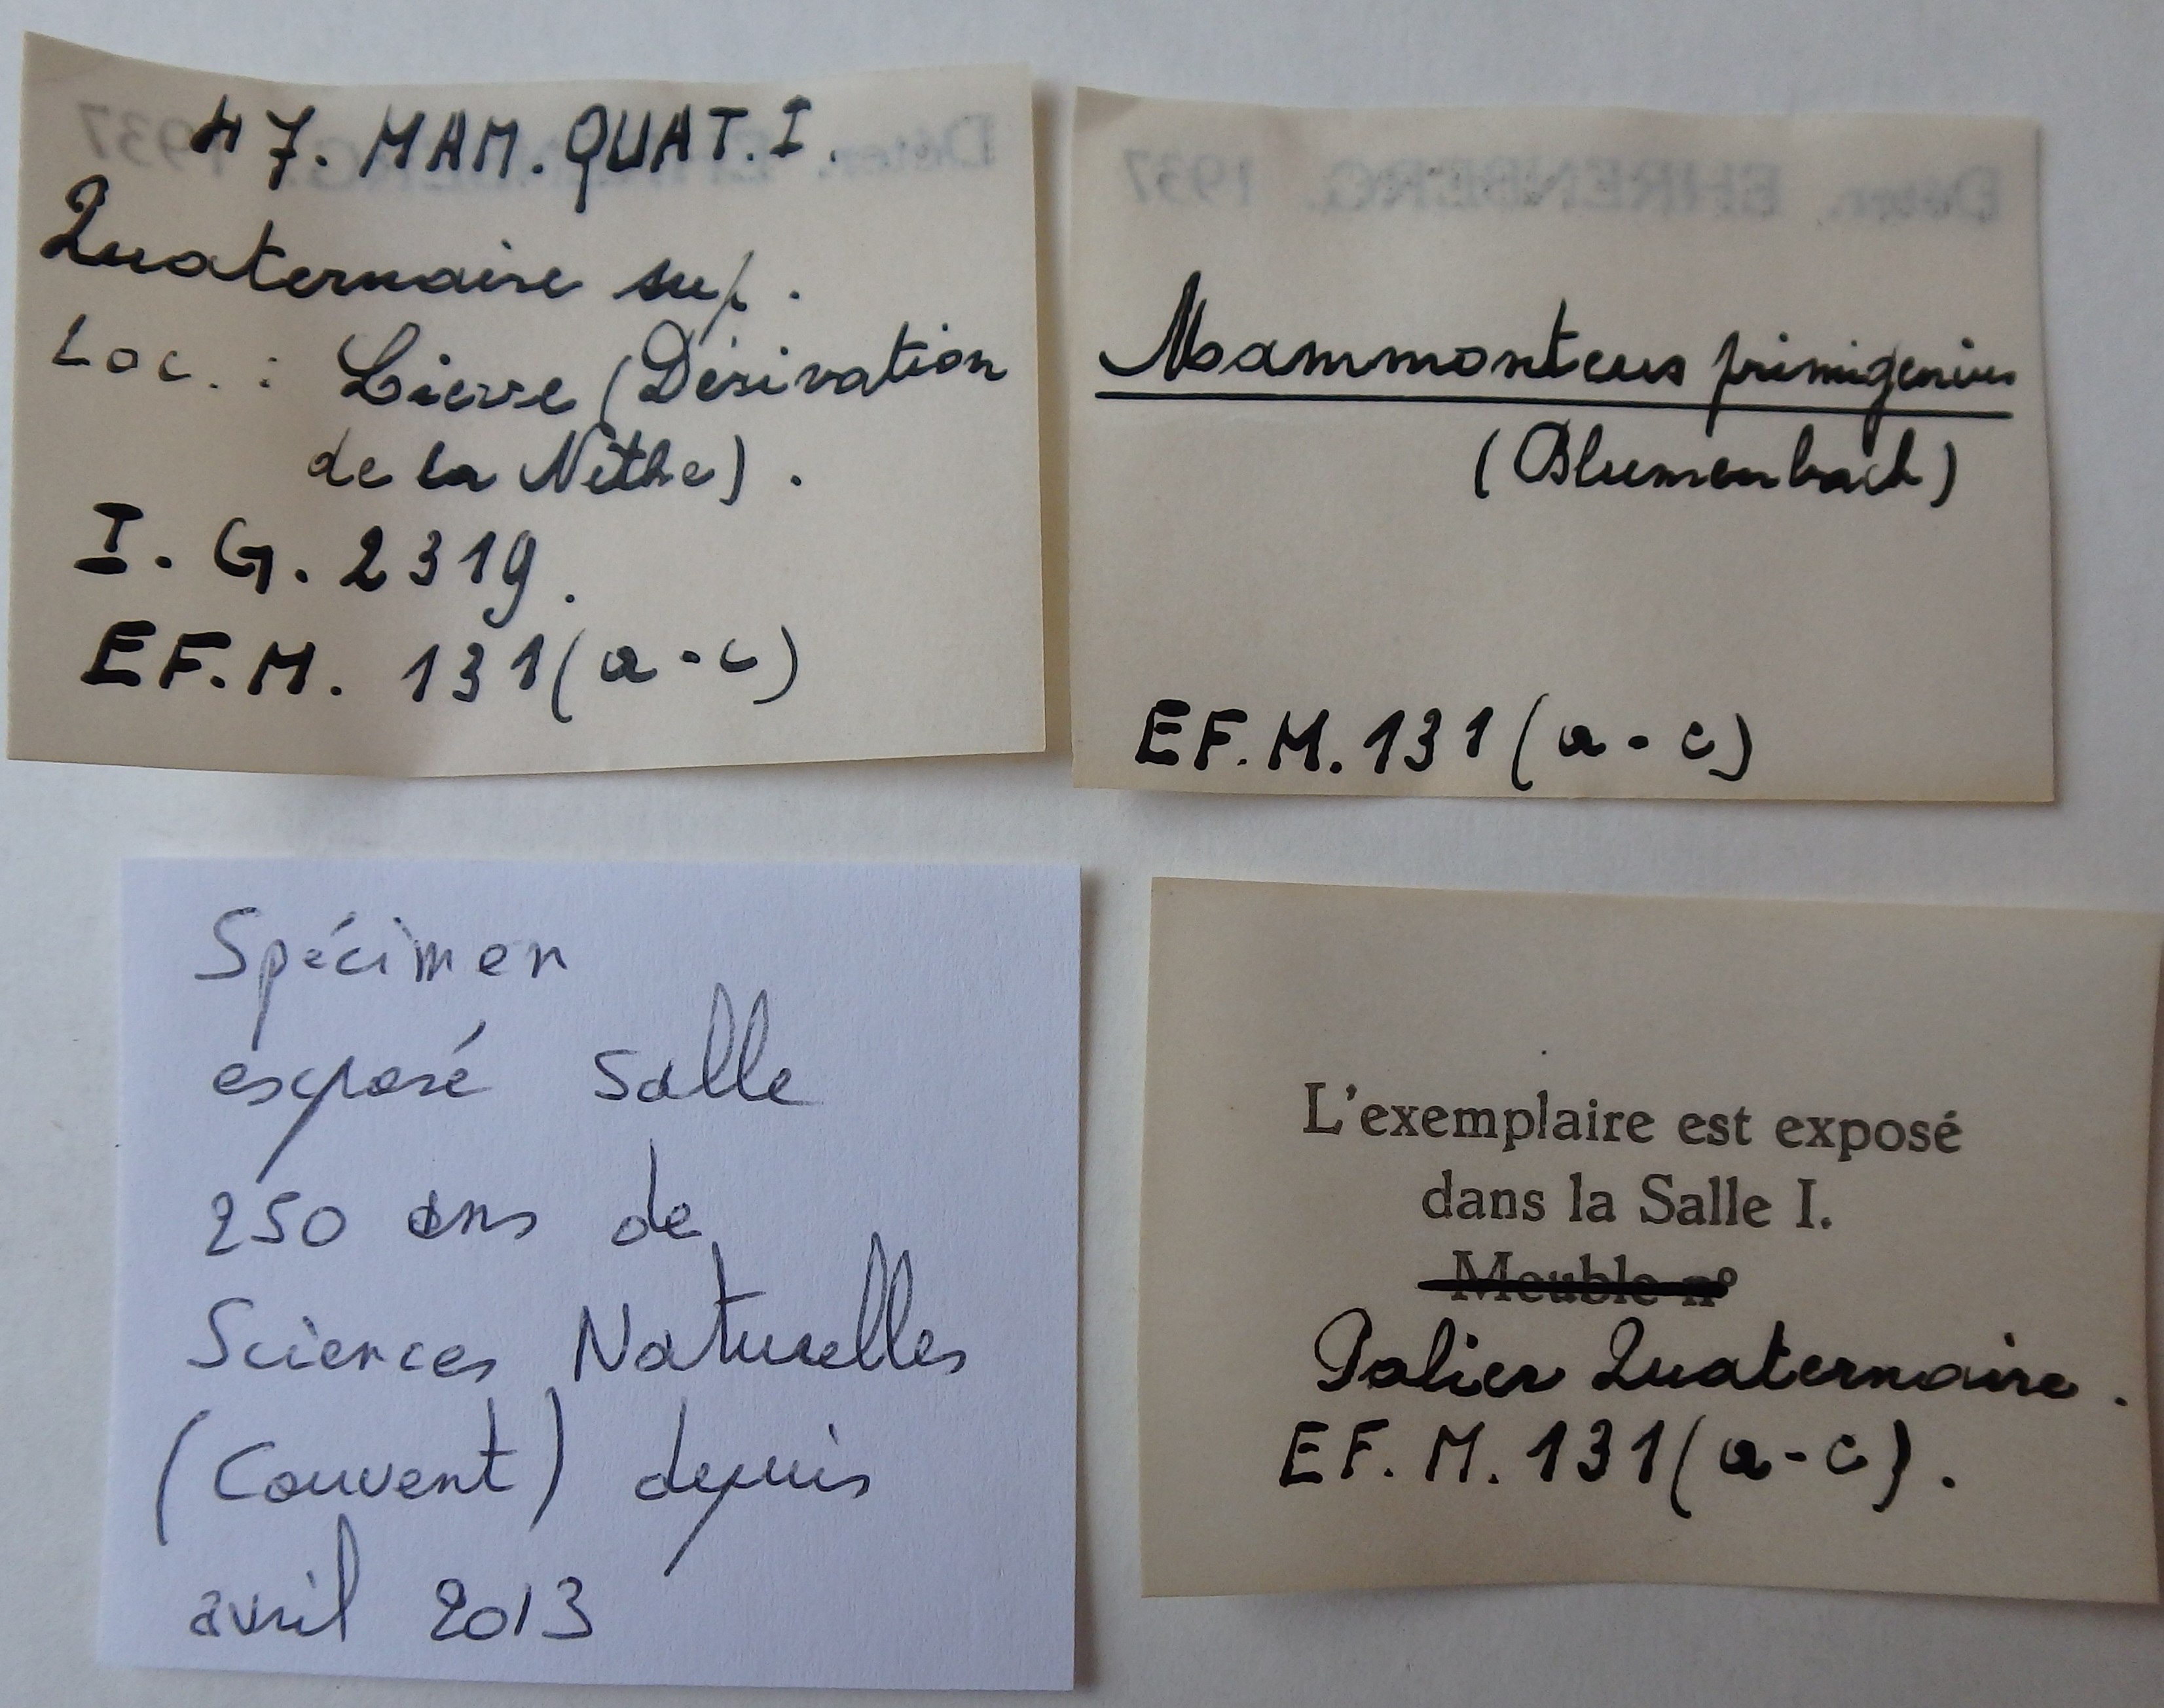 47. MAM. QUAT. I.
Quaternaire sup.
Loc. : Lierre (Dérivation
de la Nèthe).
I. G. 2319.
EF. M. 131 (a-c)
Déter. EHRENBERG. 1937
Mammonteus primigenius
(Blumenbach)
EF. M. 131 (a-c)
Spécimen
exposé salle
250 ans de
Sciences Naturelles
(Couvent) depuis
avril 2013
L'exemplaire est exposé
dans la Salle I.
Meuble nº
Palier Quaternaire.
EF. M. 131 (a-c).